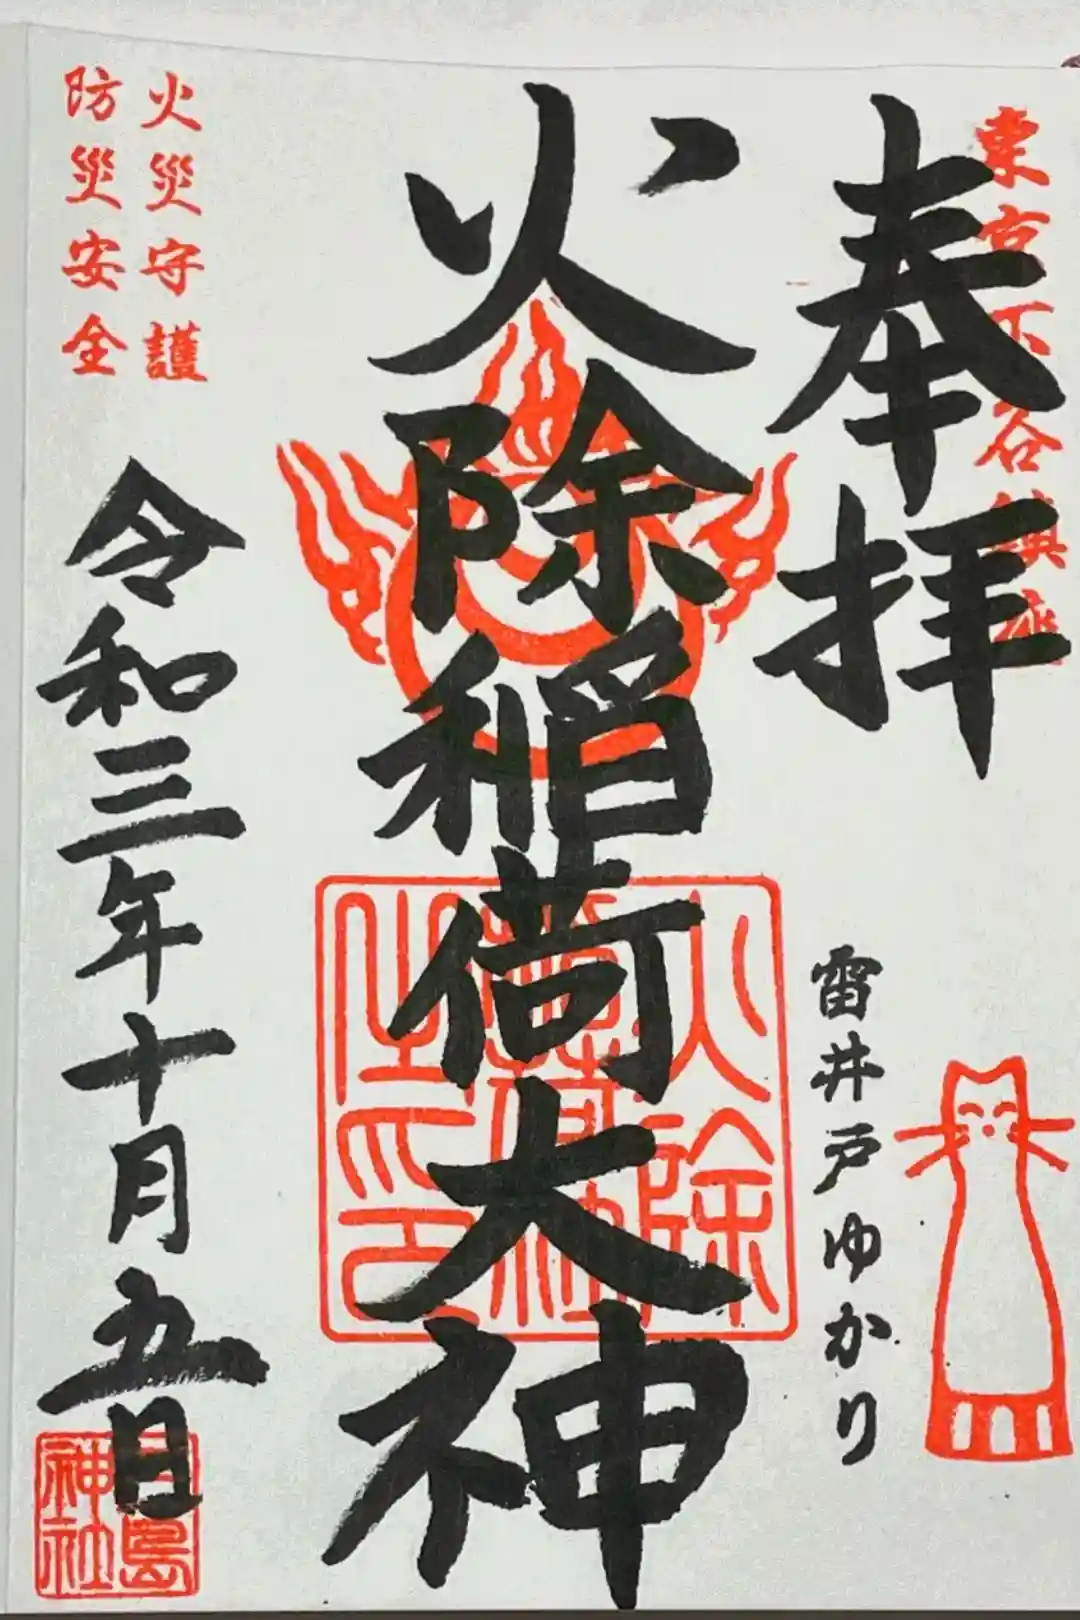 東京下谷鎮座
奉拝
雷井戸ゆかり
火除稲荷大神
火除
稲荷社
之印
火災守護
防災安全
令和三年十月五日
神社